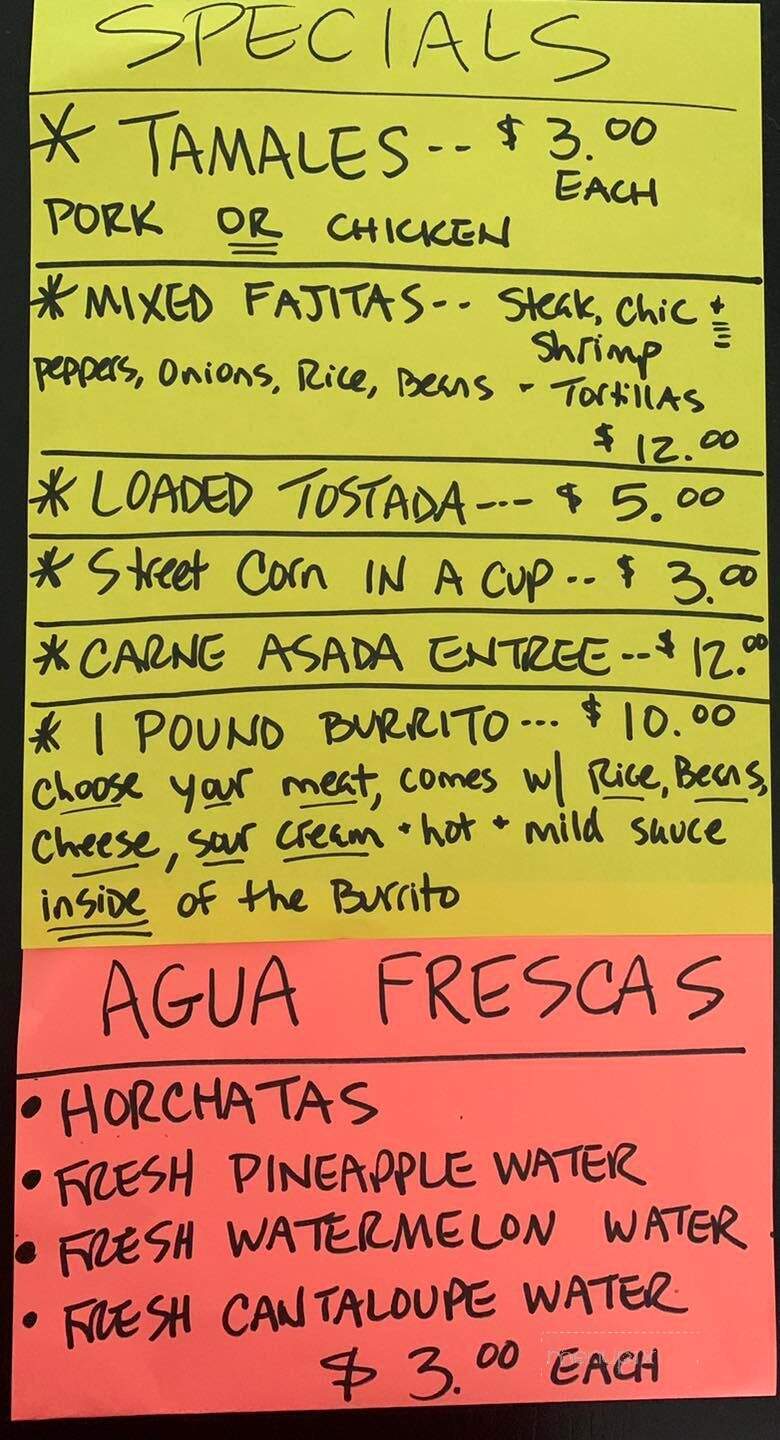 SPECIALS
* TAMALES -- $3.00
EACH
PORK OR CHICKEN
* MIXED FAJITAS -- Steak, Chic +
Shrimp
Peppers, Onions, Rice, Beans - Tortillas
$12.00
* LOADED TOSTADA --- $5.00
* Street Corn IN A CUP -- $3.00
* CARNE ASADA ENTREE -- $12.00
* 1 POUND BURRITO --- $10.00
Choose your meat, comes w/ Rice, Beans,
Cheese, sour cream + hot + mild sauce
inside of the Burrito
AGUA FRESCAS
• HORCHATAS
• FRESH PINEAPPLE WATER
• FRESH WATERMELON WATER
• FRESH CANTALOUPE WATER
$3.00 EACH